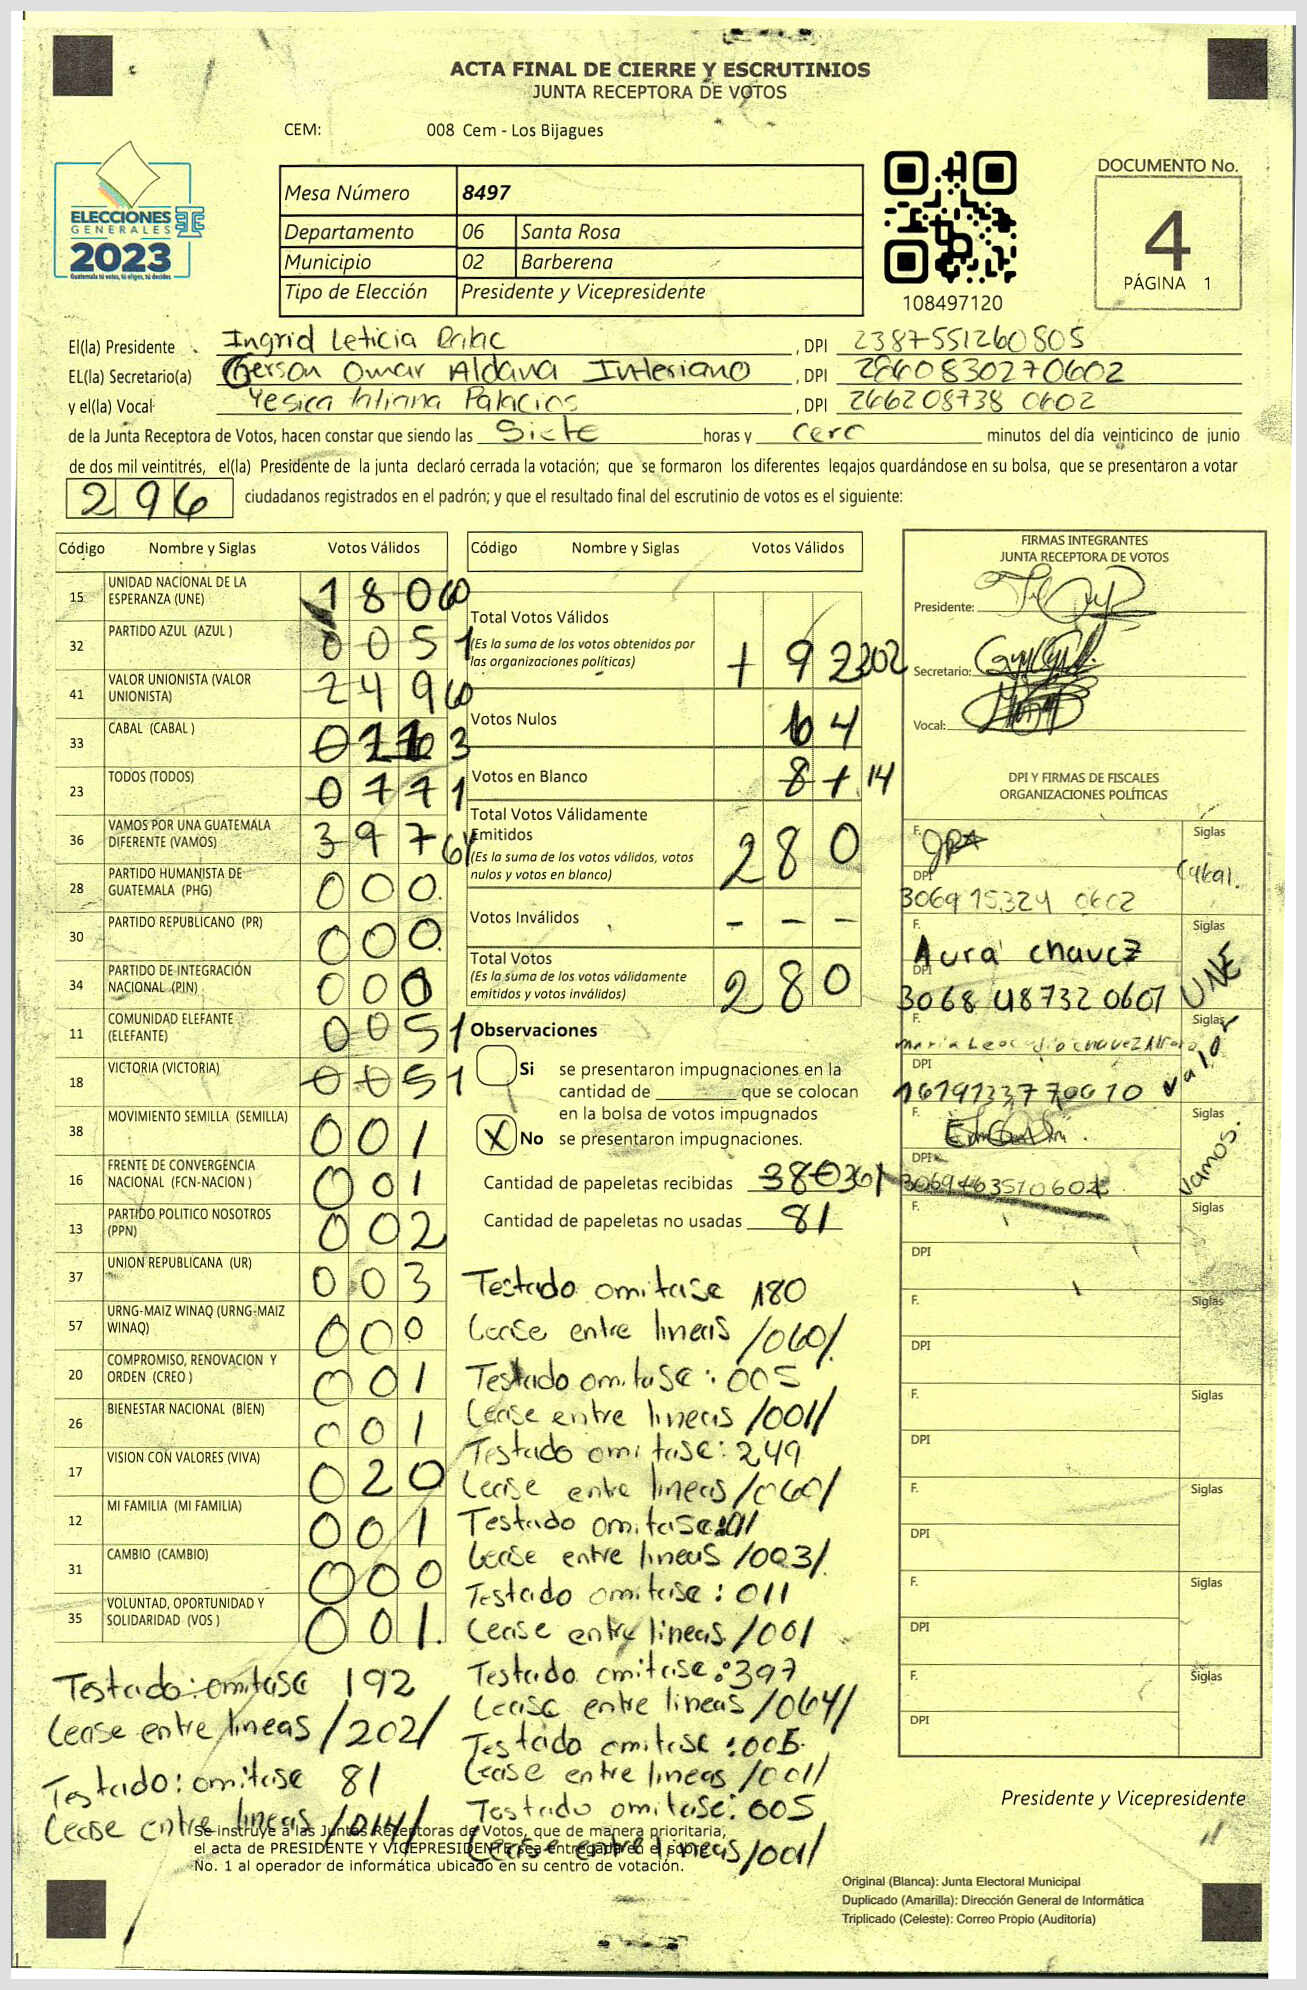 ACTA FINAL DE CIERRE Y ESCRUTINIOS
JUNTA RECEPTORA DE VOTOS
CEM: 008 Cem - Los Bijagues
ELECCIONES
GENERALES
2023
Guatemala tú votas, tú eliges, tú decides
Mesa Número 8497
Departamento 06 Santa Rosa
Municipio 02 Barberena
Tipo de Elección Presidente y Vicepresidente
108497120
DOCUMENTO No.
4
PÁGINA 1
El(la) Presidente Ingrid Leticia , DPI 2387551260805
EL(la) Secretario(a) Gerson Omar Aldana Interiano , DPI 2860830270602
y el(la) Vocal Yesica tatiana Palacios , DPI 266208738 0602
de la Junta Receptora de Votos, hacen constar que siendo las Siete horas y cero minutos del día veinticinco de junio
de dos mil veintitrés, el(la) Presidente de la junta declaró cerrada la votación; que se formaron los diferentes legajos guardándose en su bolsa, que se presentaron a votar
296 ciudadanos registrados en el padrón; y que el resultado final del escrutinio de votos es el siguiente:
Código Nombre y Siglas Votos Válidos
15 UNIDAD NACIONAL DE LA ESPERANZA (UNE) 180 60
32 PARTIDO AZUL (AZUL ) 005 1
41 VALOR UNIONISTA (VALOR UNIONISTA) 249 60
33 CABAL (CABAL ) 011 3
23 TODOS (TODOS) 077 1
36 VAMOS POR UNA GUATEMALA DIFERENTE (VAMOS) 397 64
28 PARTIDO HUMANISTA DE GUATEMALA (PHG) 000
30 PARTIDO REPUBLICANO (PR) 000
34 PARTIDO DE INTEGRACIÓN NACIONAL (PIN) 000
11 COMUNIDAD ELEFANTE (ELEFANTE) 005 1
18 VICTORIA (VICTORIA) 005 1
38 MOVIMIENTO SEMILLA (SEMILLA) 001
16 FRENTE DE CONVERGENCIA NACIONAL (FCN-NACION ) 001
13 PARTIDO POLITICO NOSOTROS (PPN) 002
37 UNION REPUBLICANA (UR) 003
57 URNG-MAIZ WINAQ (URNG-MAIZ WINAQ) 000
20 COMPROMISO, RENOVACION Y ORDEN (CREO ) 001
26 BIENESTAR NACIONAL (BIEN) 001
17 VISION CON VALORES (VIVA) 020
12 MI FAMILIA (MI FAMILIA) 001
31 CAMBIO (CAMBIO) 000
35 VOLUNTAD, OPORTUNIDAD Y SOLIDARIDAD (VOS ) 001
Testado: omitase 192
Lease entre lineas /202/
Testado: omitase 81
Lease entre lineas /014/
Código Nombre y Siglas Votos Válidos
Total Votos Válidos 192 202
(Es la suma de los votos obtenidos por
las organizaciones políticas)
Votos Nulos 64
Votos en Blanco 81 14
Total Votos Válidamente
Emitidos 280
(Es la suma de los votos válidos, votos
nulos y votos en blanco)
Votos Inválidos - - -
Total Votos 280
(Es la suma de los votos válidamente
emitidos y votos inválidos)
Observaciones
Si se presentaron impugnaciones en la
cantidad de ________ que se colocan
en la bolsa de votos impugnados
X No se presentaron impugnaciones.
Cantidad de papeletas recibidas 380 361
Cantidad de papeletas no usadas 81
Testado omitase 180
Lease entre lineas /060/
Testado omitase: 005
Lease entre lineas /001/
Testado omitase: 249
Lease entre lineas /060/
Testado omitase: 011
Lease entre lineas /003/
Testado omitase: 011
Lease entre lineas /001
Testado omitase: 397
Lease entre lineas /064/
Testado omitase: 005
Lease entre lineas /001/
Testado omitase: 005
Lease entre lineas /001/
FIRMAS INTEGRANTES
JUNTA RECEPTORA DE VOTOS
Presidente:
Secretario:
Vocal:
DPI Y FIRMAS DE FISCALES
ORGANIZACIONES POLÍTICAS
F. Siglas Cabal.
DPI 3069 15324 0602
F. Aura chavez Siglas UNE
DPI 3068 48732 0607
F. Maria Siglas Valor
DPI
F. Siglas Vamos.
DPI
F. Siglas
DPI
F. Siglas
DPI
F. Siglas
DPI
F. Siglas
DPI
F. Siglas
DPI
F. Siglas
DPI
Presidente y Vicepresidente
Se instruye a las Juntas Receptoras de Votos, que de manera prioritaria,
el acta de PRESIDENTE Y VICEPRESIDENTE sea entregada en el sobre
No. 1 al operador de informática ubicado en su centro de votación.
Original (Blanca): Junta Electoral Municipal
Duplicado (Amarilla): Dirección General de Informática
Triplicado (Celeste): Correo Propio (Auditoría)